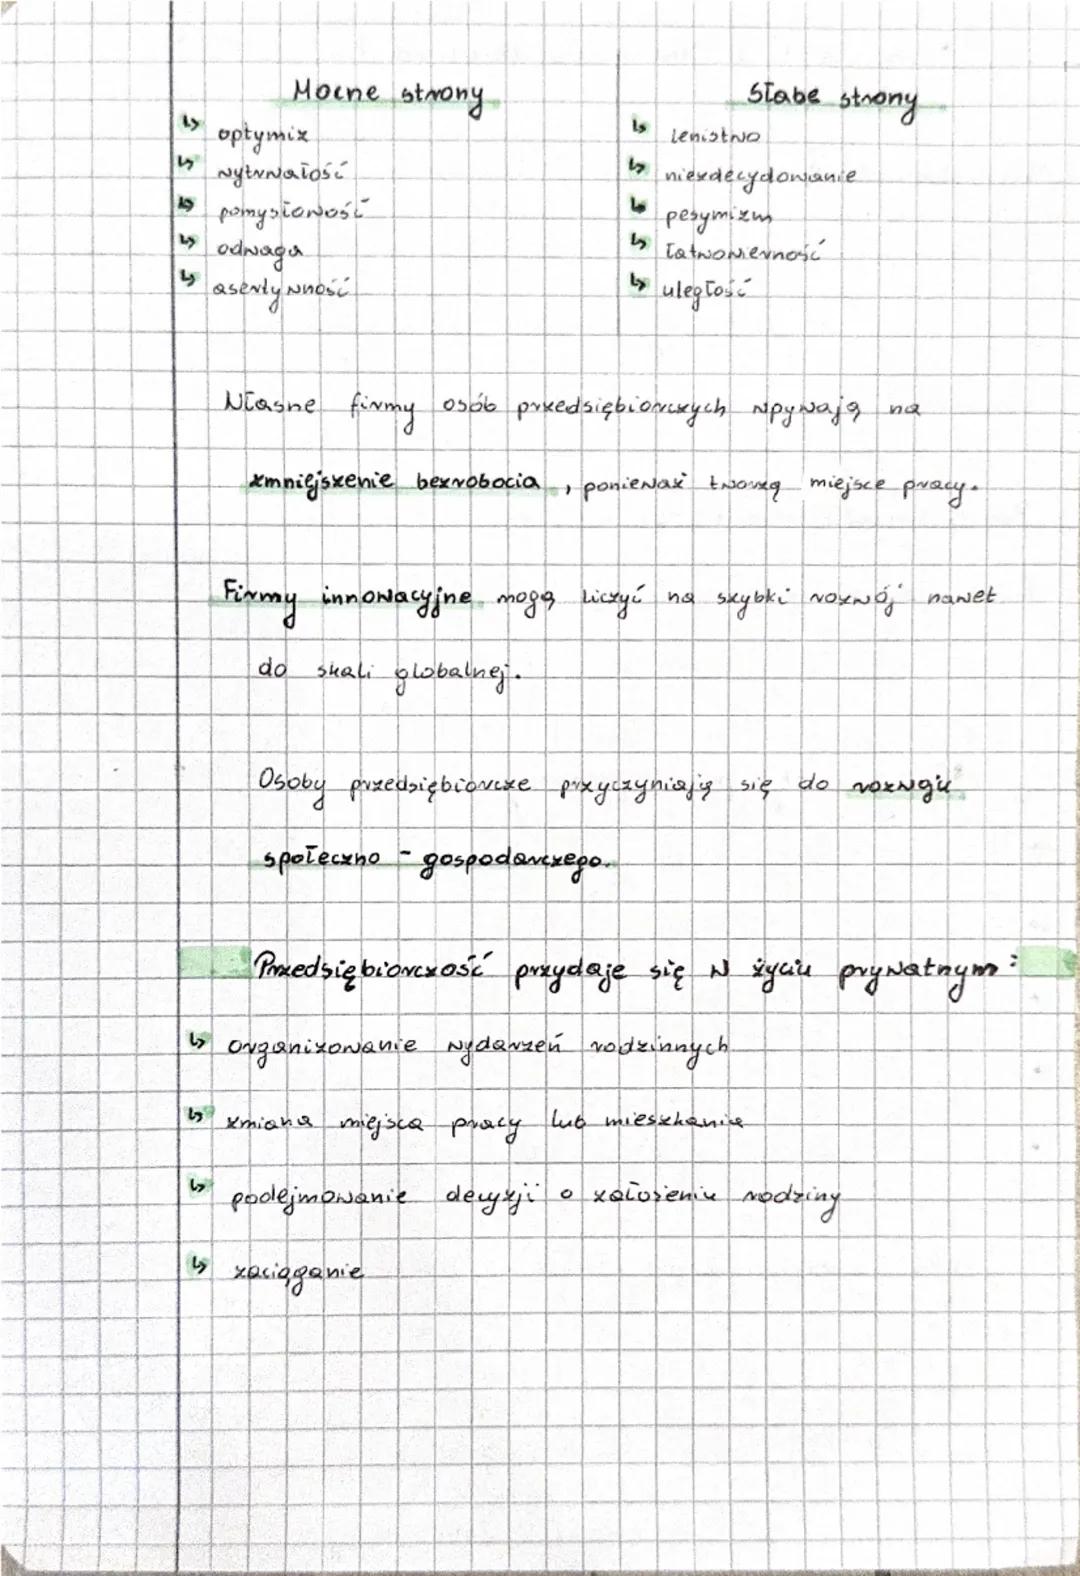 Mocne strony
↳ optymiz
↳ wytrwałość
↳ pomysłowość
↳ odwaga
↳ asertywność
Słabe strony
↳ lenistwo
↳ niezdecydowanie
↳ pesymizm
↳ łatwowierność
↳ uległość
Własne firmy osób przedsiębiorczych wpywają na
zmniejszenie bezrobocia, ponieważ tworzą miejsce pracy.
Firmy innowacyjne mogą liczyć na szybki rozwój nawet
do skali globalnej.
Osoby przedsiębiorcze przyczyniają się do rozwoju
społeczno - gospodarczego.
Przedsiębiorczość przydaje się w życiu prywatnym:
↳ organizowanie wydarzeń rodzinnych
↳ zmiana miejsca pracy lub mieszkania
↳ podejmowanie decyzji o założeniu rodziny
↳ zaciąganie